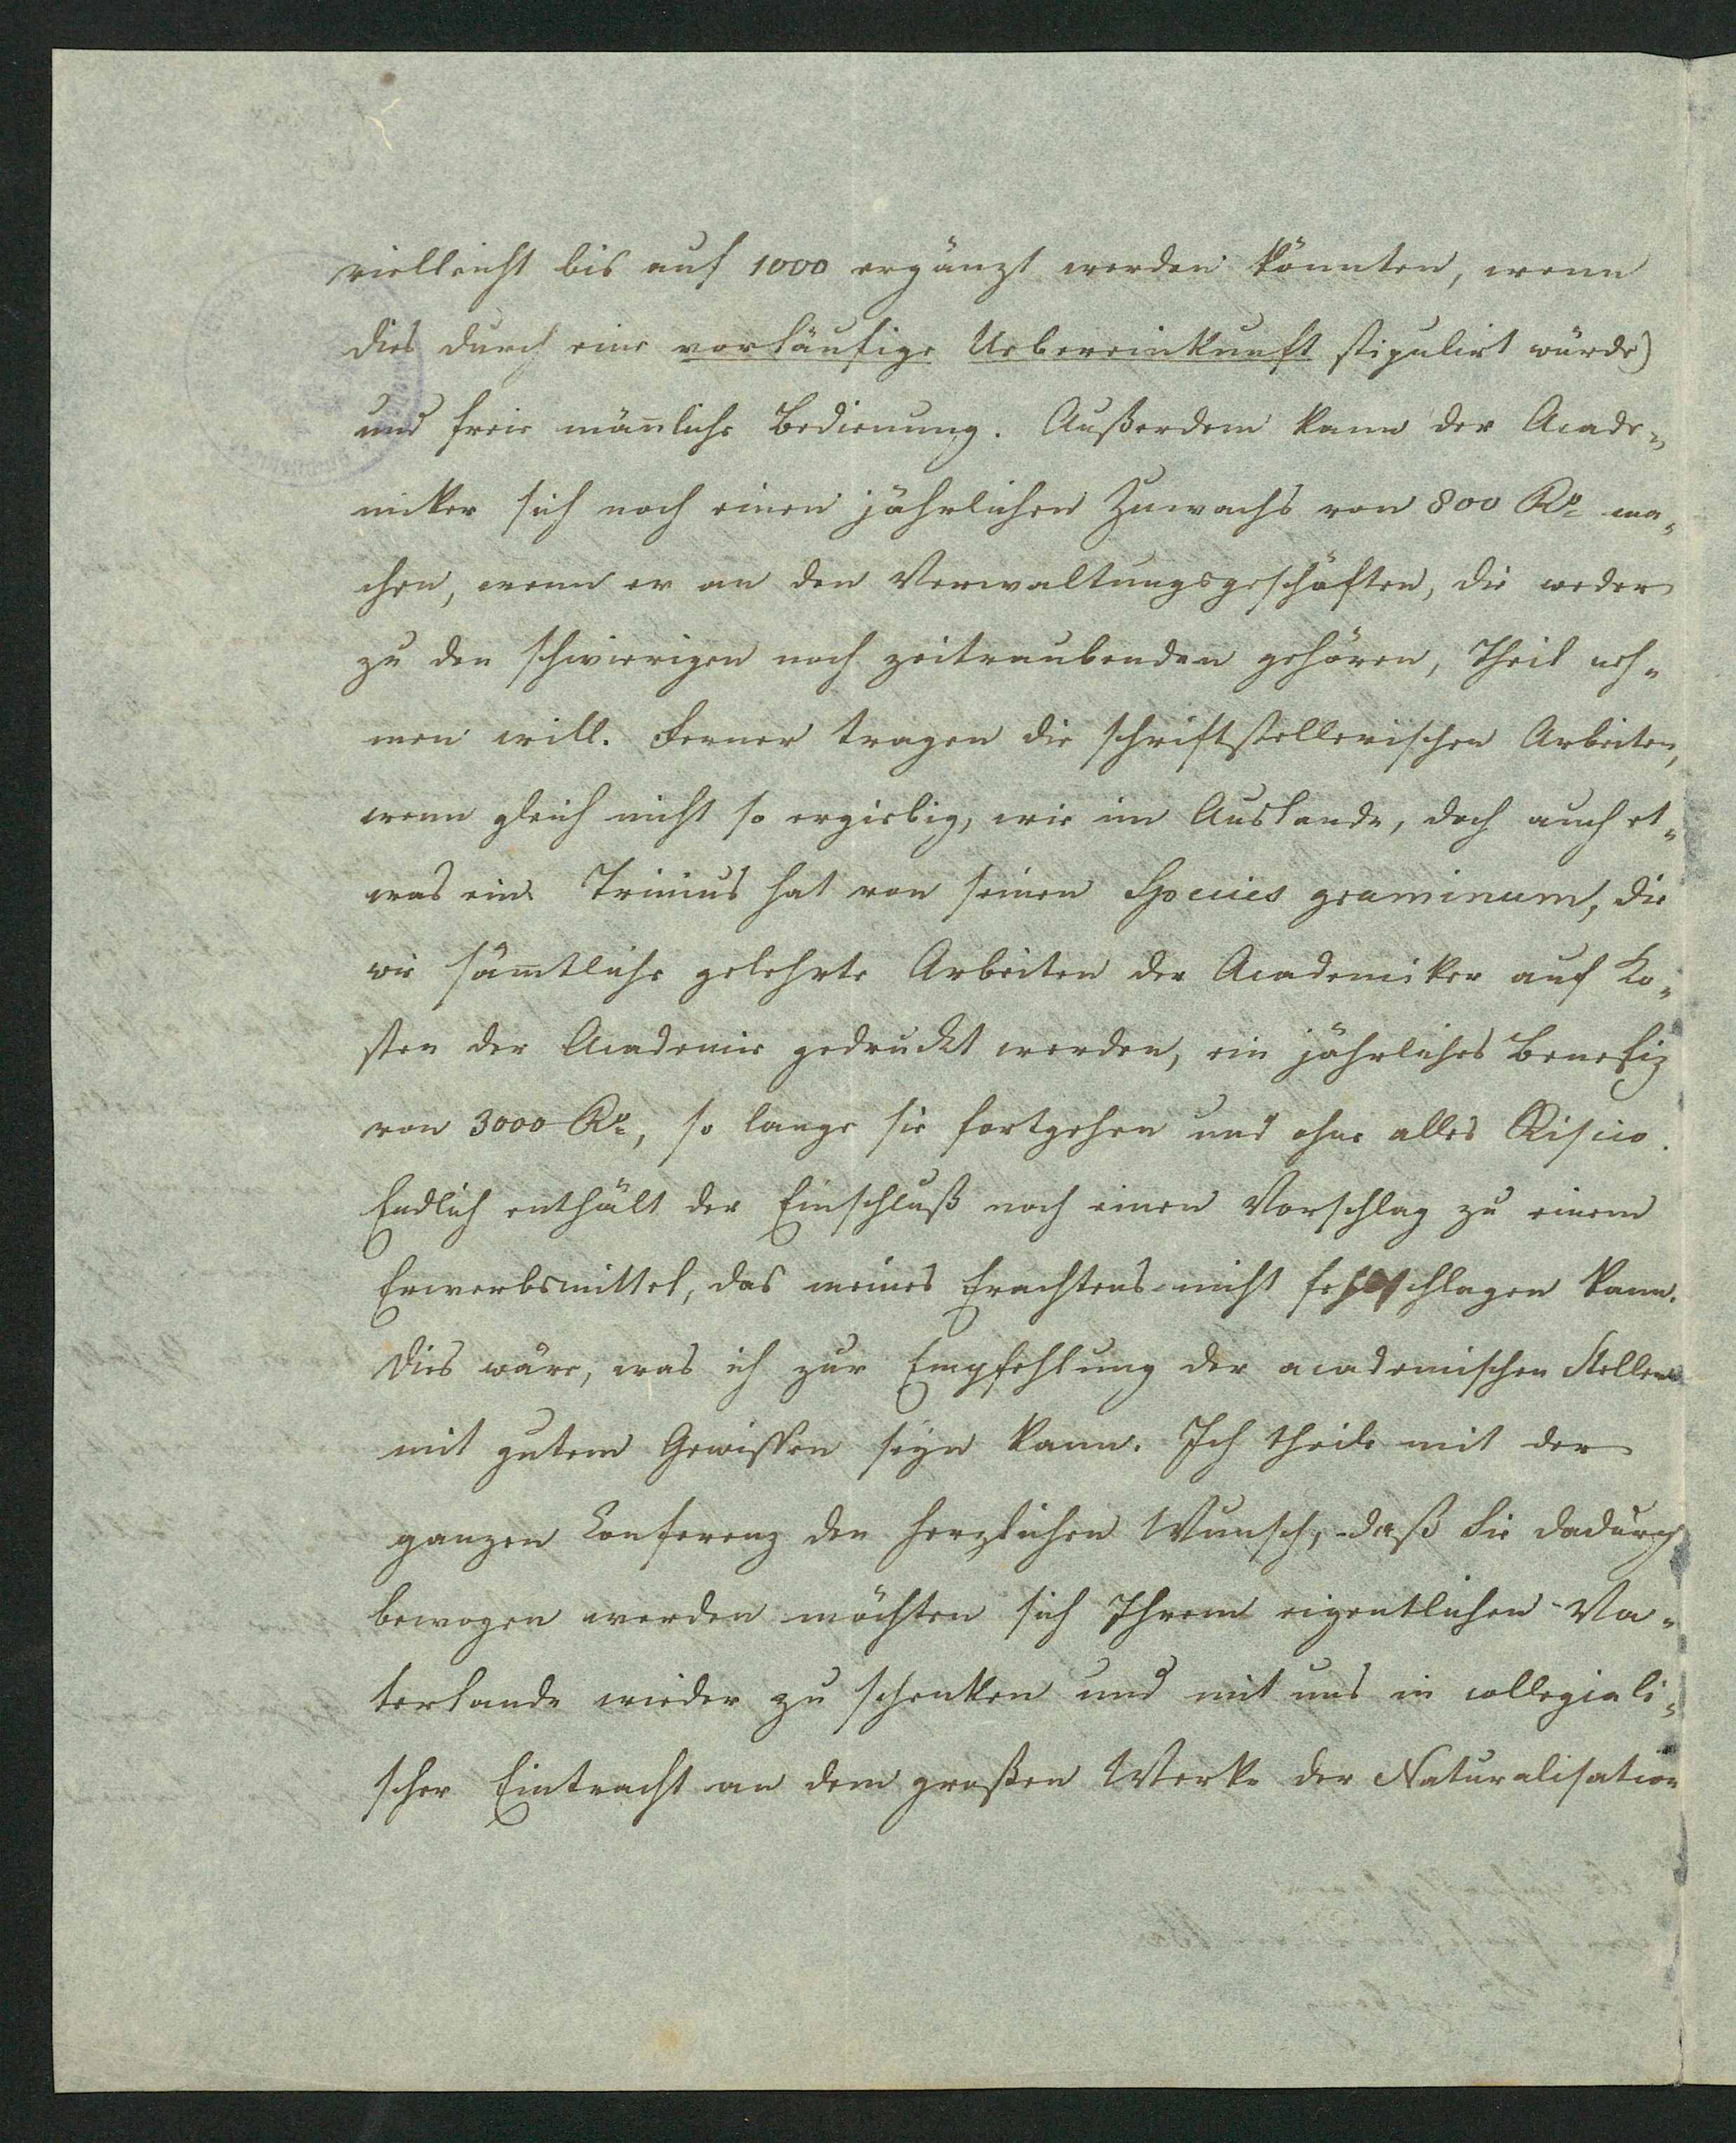 vielleicht bis auf 1000 ergänzt werden könnten, wenn
dies durch eine vorläufige Uebereinkunft stipulirt würde)
und freie mañliche Bedienung. Außerdem kann der Acade-
miker sich noch einen jährlichen Zuwachs von 800 Rl ma-
chen, wenn er an den Verwaltungsgeschäften, die weder
zu den schwierigen noch zeitraubenden gehören, Theil neh-
men will. Ferner tragen die schriftstellerischen Arbeiten,
wenn gleich nicht so ergiebig, wie im Auslande, doch auch et-
was ein. Trinius hat von seinen Species graminum, die
wie säm̃tliche gelehrte Arbeiten der Academiker auf Ko-
sten der Academie gedruckt werden, ein jährliches Benefiz
von 3000 Rl, so lange sie fortgehen und ohne alles Risico.
Endlich enthält der Einschluß noch einen Vorschlag zu einem
Erwerbsmittel, das meines Erachtens nicht fehlschlagen kann.
Dies wäre, was ich zur Empfehlung der academischen Stellen
mit gutem Gewissen sagen kann. Ich theile mit der
ganzen Conferenz den herzlichen Wunsch, daß Sie dadurch
bewogen werden möchten sich Ihrem eigentlichen Va-
terlande wieder zu schenken und mit uns in collegiali-
scher Eintracht an dem großen Werke der Naturalisation